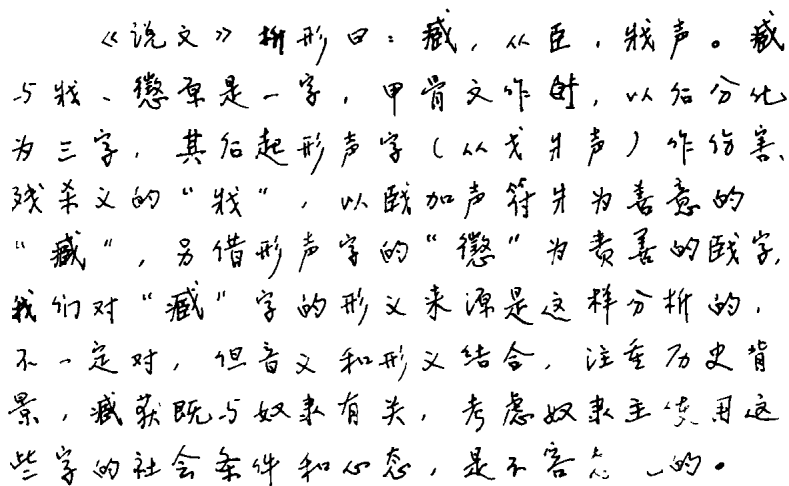 《说文》析形曰：臧，从臣，戕声。臧
与戕、懲原是一字，甲骨文作，以后分化
为三字，其后起形声字（从戈爿声）作伤害、
残杀义的“戕”，以臤加声符爿为善意的
“臧”，另借形声字的“懲”为责善的字，
我们对“臧”字的形义来源是这样分析的，
不一定对，但音义和形义结合，注重历史背
景，臧获既与奴隶有关，考虑奴隶主使用这
些字的社会条件和心态，是不容的。